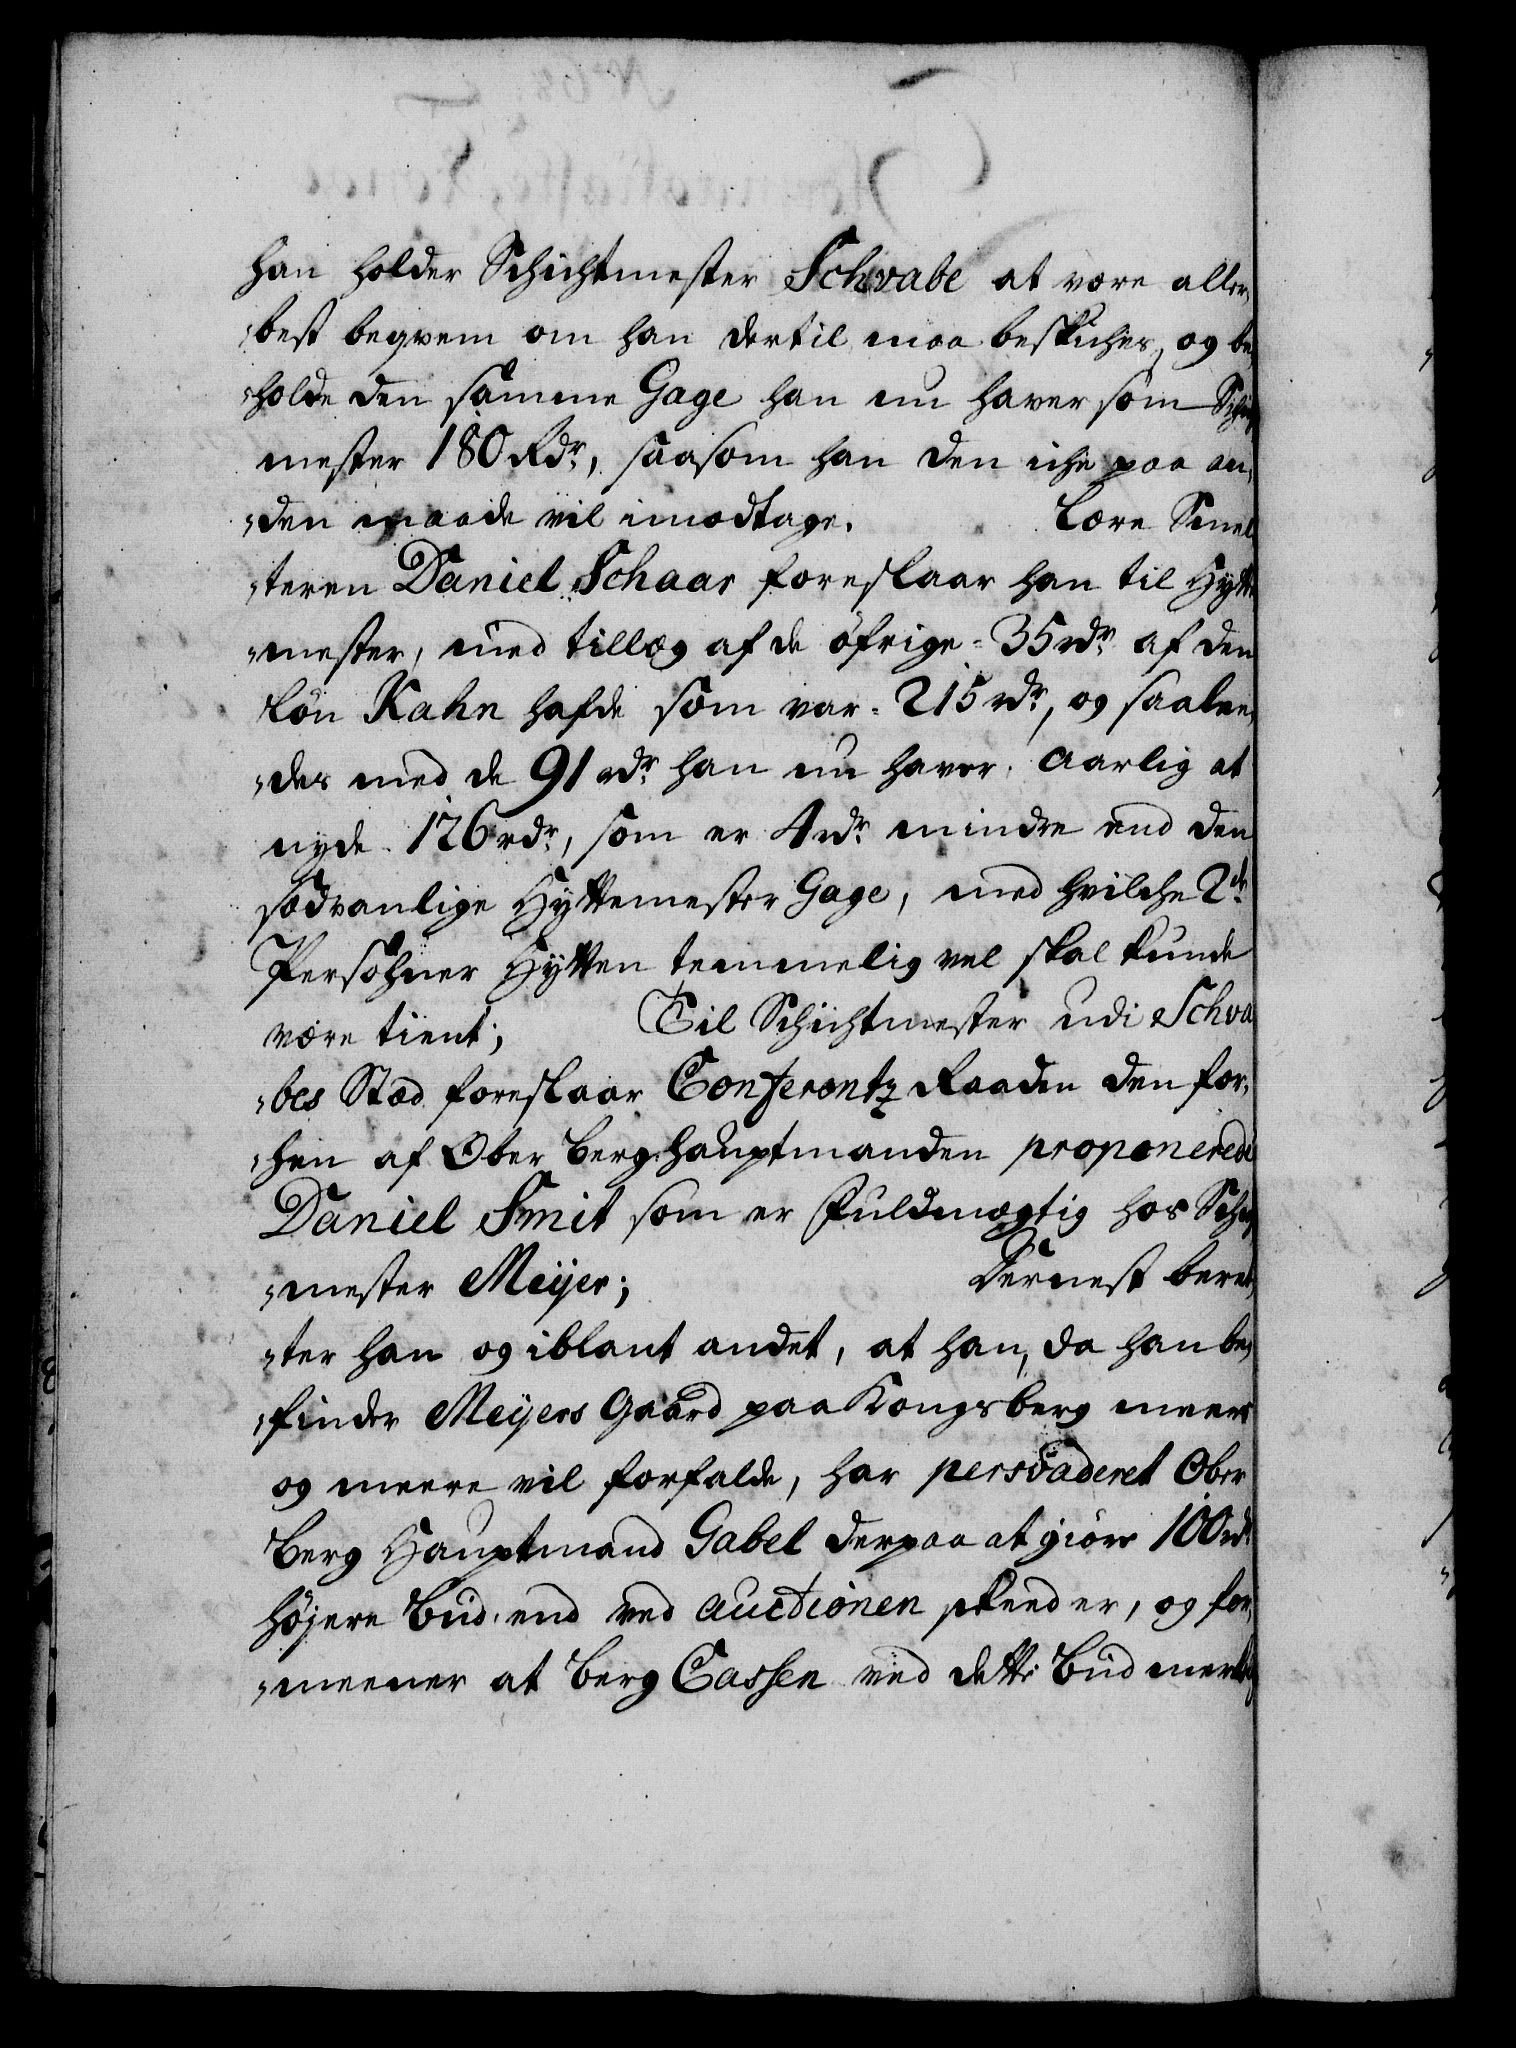 han holder Schichtmester Schvabe at være aller-
-best beqvem om han dertil maa beskiches, og be-
-holde den samme Gage han nu haver som Schicht
mester 180 Rdr, saasom han den iche paa an-
-den maade vil imodtage. Lære Smel
-teren Daniel Schaar foreslaar han til Hytte
-mester, med tillæg af de öfrige 35 rdr af den
Lön Kahn hafde som var 215 rdr, og saalee-
-des med de 91 rdr han nu haver, aarlig at
nyde 126 rdr, som er 4 rdr mindre end den
sædvanlige Hyttemester Gage, med hvilche 2de
Persohner Hÿtten temmelig vel skal kunde
være tient; Til Schichtmester udi Schva
-bes Stæd foreslaar Conferentz Raaden den for-
-hen af Ober Berghauptmanden proponerede
Daniel Smit som er Fuldmægtig hos Schicht
-mester Meÿer; Dernest beret-
-ter han og iblant andet, at han, da han be-
-finder Meÿers Gaard paa Kongsberg meere
og meere vil forfalde, har persvaderet Ober
Berg Hauptmand Gabel derpaa at giöre 100 rdr
höjere Bud, end ved auctionen skeed er, og for-
-meener at Berg Cassen ved dette Bud merkelig